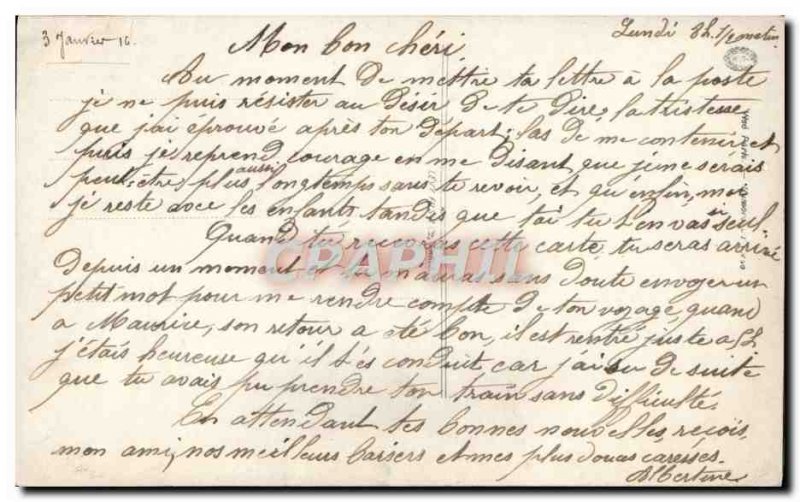 3 Janvier 16.
Lundi 8h 1/2 matin
Mon bon chéri,
Au moment de mettre ta lettre à la poste
je ne puis résister au désir de te dire, la tristesse
que j'ai éprouvé après ton départ; las de me contenir et
puis je reprend courage en me disant que je ne serais
peut-être plus aussi longtemps sans te revoir, et qu'enfin, moi
je reste avec les enfants tandis que toi tu t'en vas seul.
Quand tu recevras cette carte, tu seras arrivé
depuis un moment et tu m'auras sans doute envoyer un
petit mot pour me rendre compte de ton voyage, quand
a Maurice, son retour a été bon, il est rentré juste a 5h
j'étais heureuse qu'il t'es conduit, car j'ai su de suite
que tu avais pu prendre ton train sans difficultés.
En attendant tes bonnes nouvelles, reçois,
mon ami, nos meilleurs baisers et mes plus douces caresses.
Albertine
CPAPHIL